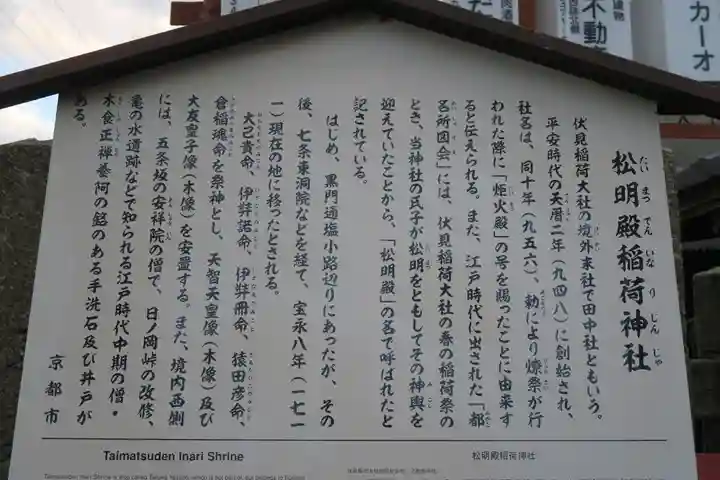 松明殿稲荷神社
たいまつでんいなりじんじゃ
伏見稲荷大社の境外末社で田中社ともいう。
平安時代の天暦二年（九四八）に創始され、
社名は、同十年（九五六）、勅により燎祭が行
われた際に「炬火殿」の号を賜ったことに由来す
ると伝えられる。また、江戸時代に出された「都
名所図会」には、伏見稲荷大社の春の稲荷祭の
とき、当神社の氏子が松明をともしてその神輿を
迎えていたことから、「松明殿」の名で呼ばれたと
記されている。
はじめ、黒門通塩小路辺りにあったが、その
後、七条東洞院などを経て、宝永八年（一七一
一）現在の地に移ったとされる。
大己貴命、伊弉諾命、伊弉冊命、猿田彦命、
倉稲魂命を祭神とし、天智天皇像（木像）及び
大友皇子像（木像）を安置する。また、境内西側
には、五条坂の安祥院の僧で、日ノ岡峠の改修、
亀の水道跡などで知られる江戸時代中期の僧・
木食正禅養阿の銘のある手洗石及び井戸が
ある。
京都市
Taimatsuden Inari Shrine
松明殿稲荷神社
不動産
カーオ